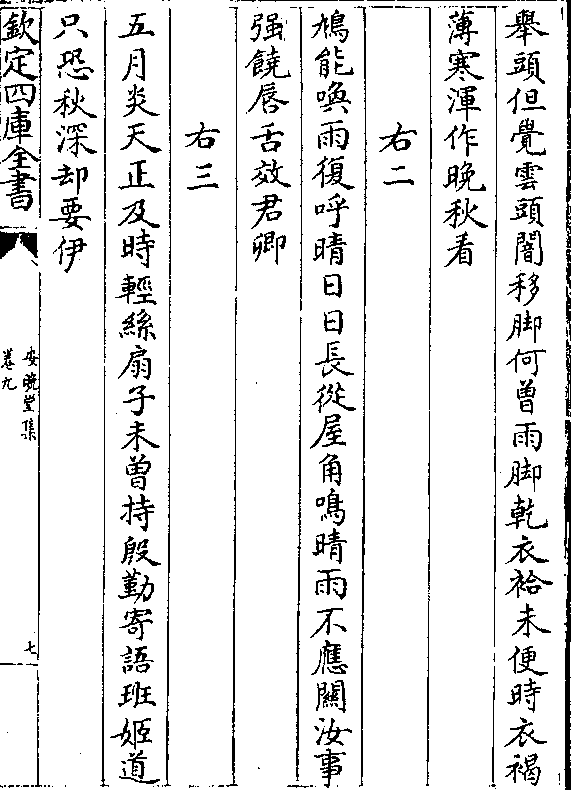 舉頭但覺雲頭闇移脚何曽雨脚乾衣袷未便時衣褐
薄寒渾作晚秋看
右二
鳩能喚雨復呼晴日日長從屋角鳴晴雨不應關汝事
强饒唇舌效君卿
右三
五月炎天正及時輕絲扇子未曽持殷勤寄語班姬道
只恐秋深却要伊
欽定四庫全書
安晚堂集
卷九
七